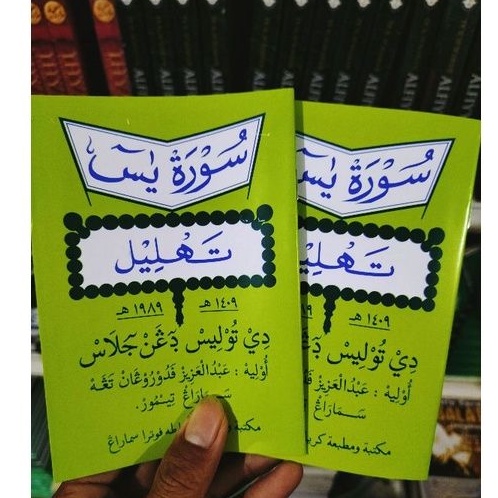 سُوْرَةْ يٰسٓ
تَهْلِيْل
١٤٠٩ هـ ١٩٨٩ هـ
دِيْ تُوْلِيْس دَڠَنْ جَلَاسْ
أُوْلِيْهْ : عَبْدُ الْعَزِيْز قَدُورُوْڠَانْ تَڠَهْ
سَمَارَاڠْ تِيْمُوْر.
مكتبة طه فوترا سماراڠ
سُوْرَةْ يٰسٓ
تَهْلِيْ
١٤٠٩ هـ
دِيْ تُوْلِيْس دَڠَنْ
أُوْلِيْهْ : عَبْدُ الْعَزِيْز قَدُورُوْ
سَمَارَاڠْ
مكتبة ومطبعة كر